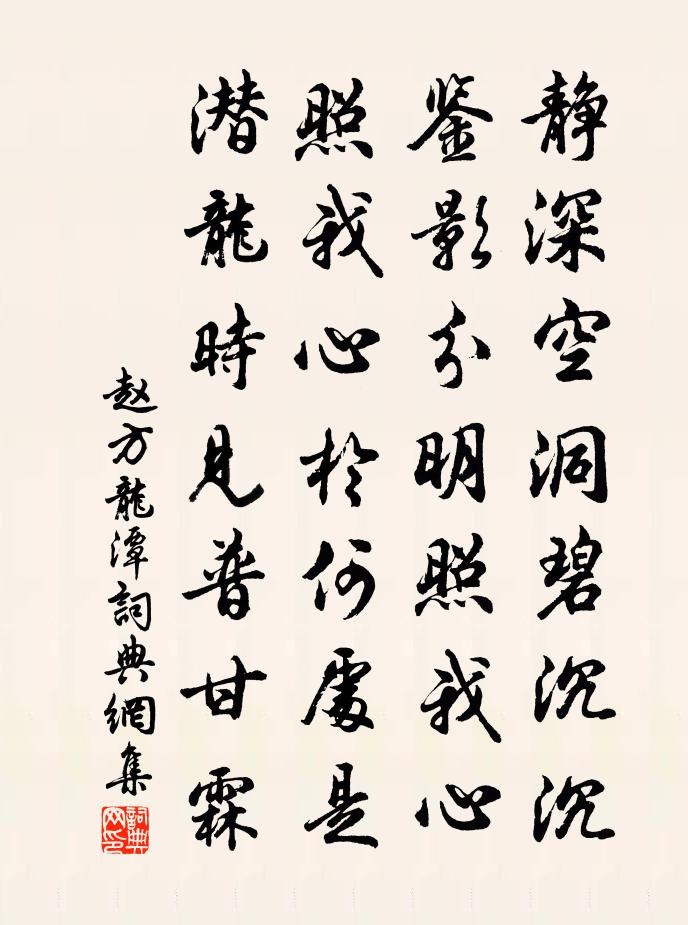 静深空洞碧沉沉
鉴影分明照我心
照我心於何處是
潜龍時見普甘霖
赵方龍潭詞典網集
詞典网印